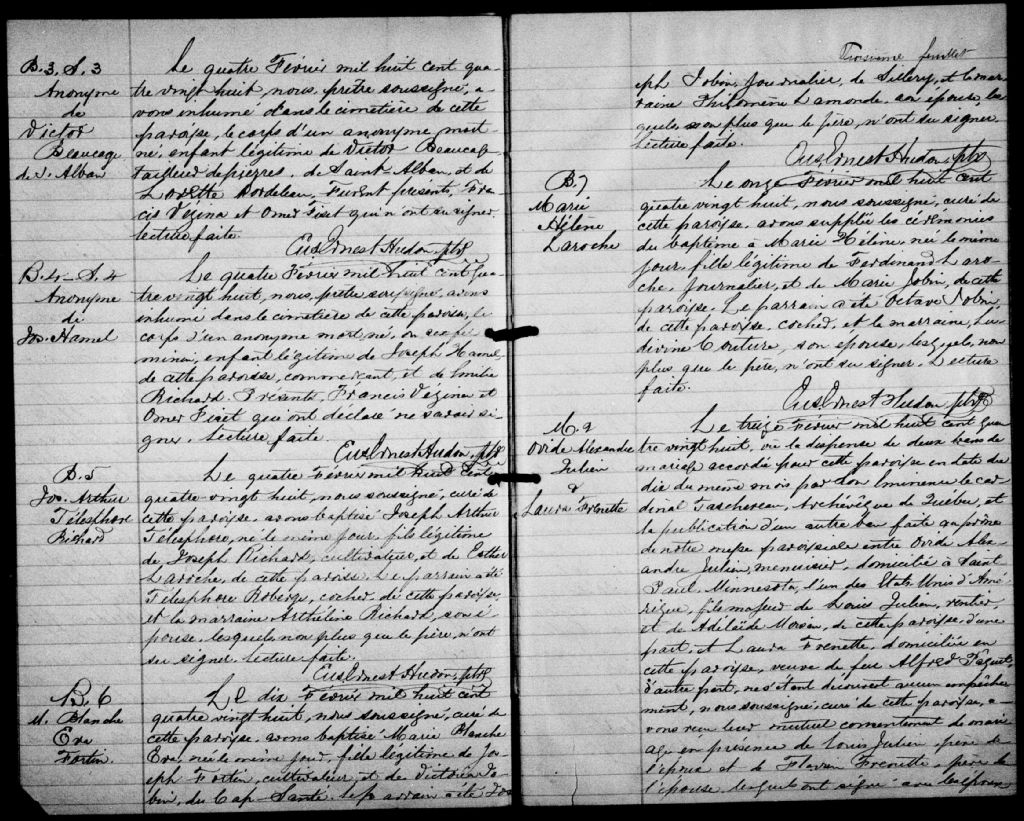 B. 3, S. 3
Anonyme
de
Victor
Beaucage
de S. Alban
Le quatre Février mil huit cent qua-
tre vingt huit, nous, prêtre soussigné, a-
vons inhumé dans le cimetière de cette
paroisse, le corps d'un anonyme mort
né, enfant légitime de Victor Beaucage
tailleur de pierres, de Saint Alban, et de
Bordeleau, Furent présents, Fran
cis Vézina et Omer Fiset qui n'ont su signer
lecture faite.
Eus. Ernest Hudon, ptre
B. 4 - S. 4
Anonyme
de
Jos. Hamel
Le quatre Février mil huit cent qua-
tre vingt huit, nous, prêtre soussigné, avons
inhumé dans le cimetière de cette paroisse, le
corps d'un anonyme mort né, du sexe fé
minin, enfant légitime de Joseph Hamel,
de cette paroisse, commerçant, et de Emilie
Richard. Présents, Francis Vézina et
Omer Fiset qui ont déclaré ne savoir si-
gner. Lecture faite.
Eus. Ernest Hudon, ptre
B. 5
Jos. Arthur
Télesphore
Richard
Le quatre Février mil huit cent
quatre vingt huit, nous soussigné, curé de
cette paroisse, avons baptisé Joseph Arthur
Télesphore, né le même jour, fils légitime
de Joseph Richard, cultivateur, et de Esther
Laroche, de cette paroisse. Le parrain a été
Télesphore Roberge, cocher, de cette paroisse,
et la marraine Richard, son é
pouse, lesquels non plus que le père, n'ont
su signer. Lecture faite.
Eus. Ernest Hudon, ptre
B. 6
M. Blanche
Eva
Fortin.
Le dix Février mil huit cent
quatre vingt huit, nous soussigné, curé de
cette paroisse, avons baptisé Marie Blanche
Eva, née le même jour, fille légitime de Jos
eph Fortin, cultivateur, et de Victoria Jo-
bin, du Cap-Santé. Le parrain a été Jos
Troisième feuillet
eph Jobin, Journalier, de Sillery, et la mar
raine Philomène Lamonde, son épouse, les
quels, non plus que le père, n'ont su signer.
Lecture faite.
Eus. Ernest Hudon, ptre
B. 7
Marie
Hélène
Laroche
Le onze Février mil huit cent
quatre vingt huit, nous soussigné, curé de
cette paroisse, avons supplée les cérémonies
du baptême à Marie Hélène, née le même
jour, fille légitime de Ferdinand Laro
che, Journalier, et de Marie Jobin, de cette
paroisse. Le parrain a été Octave Jobin,
de cette paroisse, cocher, et la marraine, Lu-
divine Couture, son épouse, lesquels, non
plus que le père, n'ont su signer. Lecture
faite.
Eus. Ernest Hudon, ptre
M. 2
Ovide Alexandre
Julien
&
Laura Frenette
Le treize Février mil huit cent qua
tre vingt huit, vu la dispense de deux bans de
mariage accordée pour cette paroisse en date du
dix du même mois par Son Eminence le car
dinal Taschereau, Archévêque de Québec, et
la publication d'un autre ban faite au prône
de notre messe paroissiale entre Ovide Alex-
andre Julien, menuisier, domicilié à Saint
Paul, Minnesota, l'un des Etats Unis d'Amé
rique, fils majeur de Louis Julien, rentier,
et de Adélaïde Morean, de cette paroisse, d'une
part, et Laura Frenette, domiciliée en
cette paroisse, veuve de feu Alfred Paquet,
d'autre part, ne s'étant découvert aucun empêche
ment, nous soussigné, curé de cette paroisse, a-
vons reçu leur mutuel consentement de mari
age en présence de Louis Julien, père de
l'époux et de Flavien Frenette, père de
l'épouse, lesquels ont signé avec les époux